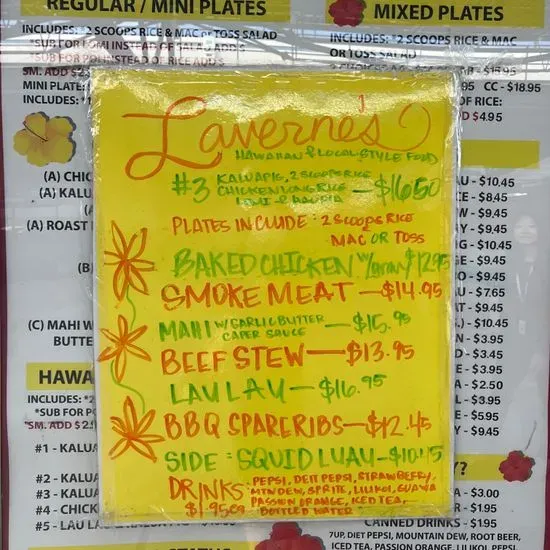 REGULAR / MINI PLATES
INCLUDES: *2 SCOOPS RICE & MAC or TOSS SALAD
*SUB FOR LOMI INSTEAD OF SALAD ADD $
*SUB FOR POI INSTEAD OF RICE ADD $
SM. ADD $2
MINI PLATE
INCLUDES: *1
(A) CHIC
(A) KALU
(A)
(A) ROAST
(B
(C) MAHI W
BUTTE
HAWA
INCLUDES: *2
*SUB FOR PO
*SM. ADD $2.
#1 - KALUA
#2 - KALUA
#3 - KALUA
#4 - CHICK
#5 - LAU LAU
MIXED PLATES
INCLUDES: *2 SCOOPS RICE & MAC
OR TOSS SALAD
- $16.95
95 CC - $18.95
OF RICE:
D $4.95
AU - $10.45
CE - $8.45
W - $9.45
Y - $9.45
G - $10.45
GE - $9.45
O - $9.45
U - $7.65
W - $9.45
.) - $10.45
N - $3.95
D - $3.45
E - $3.95
A - $2.50
L - $3.95
E - $5.95
Y - $9.45
Y?
A - $3.00
R - $1.95
CANNED DRINKS - $1.95
7UP, DIET PEPSI, MOUNTAIN DEW, ROOT BEER,
ICED TEA, PASSION ORANGE, LILIKOI, PEPSI
Laverne's
HAWAIIAN & LOCAL STYLE FOOD
#3 KALUA PIG, 2 SCOOPS RICE
CHICKEN LONG RICE — $16.50
LOMI & HAUPIA
PLATES INCLUDE : 2 SCOOPS RICE
& MAC OR TOSS
BAKED CHICKEN w/gravy $12.95
SMOKE MEAT — $14.95
MAHI W/ GARLIC BUTTER CAPER SAUCE — $15.95
BEEF STEW — $13.95
LAU LAU — $16.95
BBQ SPARERIBS — $12.45
SIDE : SQUID LUAU — $10.45
DRINKS : PEPSI, DEIT PEPSI, STRAWBERRY,
MTN DEW, SPRITE, LILIKOI, GUAVA
$1.95 ea PASSION ORANGE, ICED TEA,
BOTTLED WATER